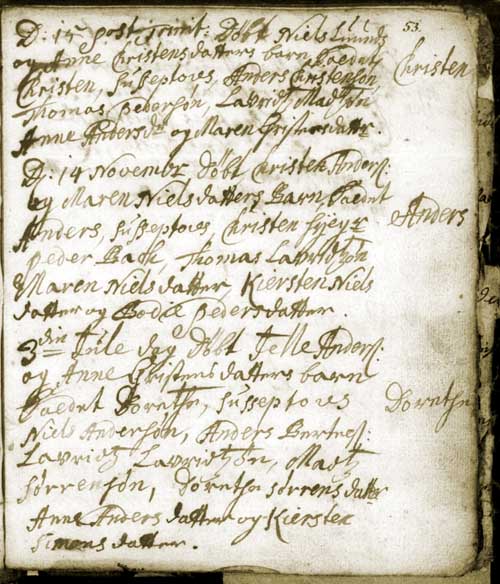 53.
D: 15 post Trinit: Døbt Niels
og Anne Christensdatters barn kaldet
Christen, Susseptores, Anders Christensøn,
Thomas Pedersøn, Lavridtz Madtzøn
Anne Andersdr og Maren Christensdatter.
Christen
D: 14 Novembr Døbt Christen Anders:
og Maren Nielsdatters Barn, kaldet
Anders, Susseptores, Christen
Peder Back, Thomas Lavridtzøn
Maren Nielsdatter, Kiersten Niels
datter og Bodil Pedersdatter.
Anders
3die Jule dag Døbt Jelle Anders:
og Anne Christens datters barn
kaldet Dorethe, Susseptores
Niels Andersøn, Anders Bertels:
Lavridtz Lavridtzøn, Madtz
Sørrensøn, Dorethe Sørrensdatter
Anne Anders datter og Kiersten
Simons datter.
Dorethe